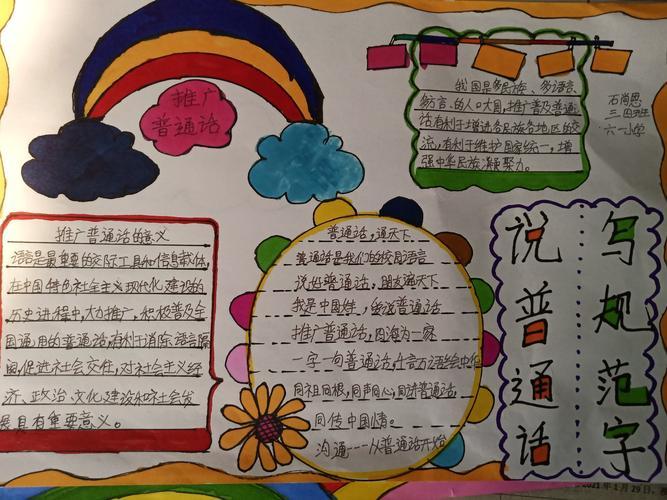 推广
普通话
我国是多民族、多语言、
多方言的人口大国,推广普及普通
话有利于增进各民族各地区的交
流,有利于维护国家统一,增
强中华民族凝聚力。
石尚恩
三.四班
六一小学
推广普通话的意义
语言是最重要的交际工具和信息载体,
在中国特色社会主义现代化建设的
历史进程中,大力推广,积极普及全
国通用的普通话,有利于消除语言隔
阂,促进社会交往,对社会主义经
济、政治、文化建设和社会发
展具有重要意义。
普通话,通天下
普通话是我们的校园语言
说好普通话,朋友遍天下
我是中国娃,爱说普通话
推广普通话,四海为一家
一字一句普通话,千言万语绘中华
同祖同根,同声同心,同讲普通话,
同传中国情。
沟通---从普通话开始
说普通话
写规范字
2021年1月29日